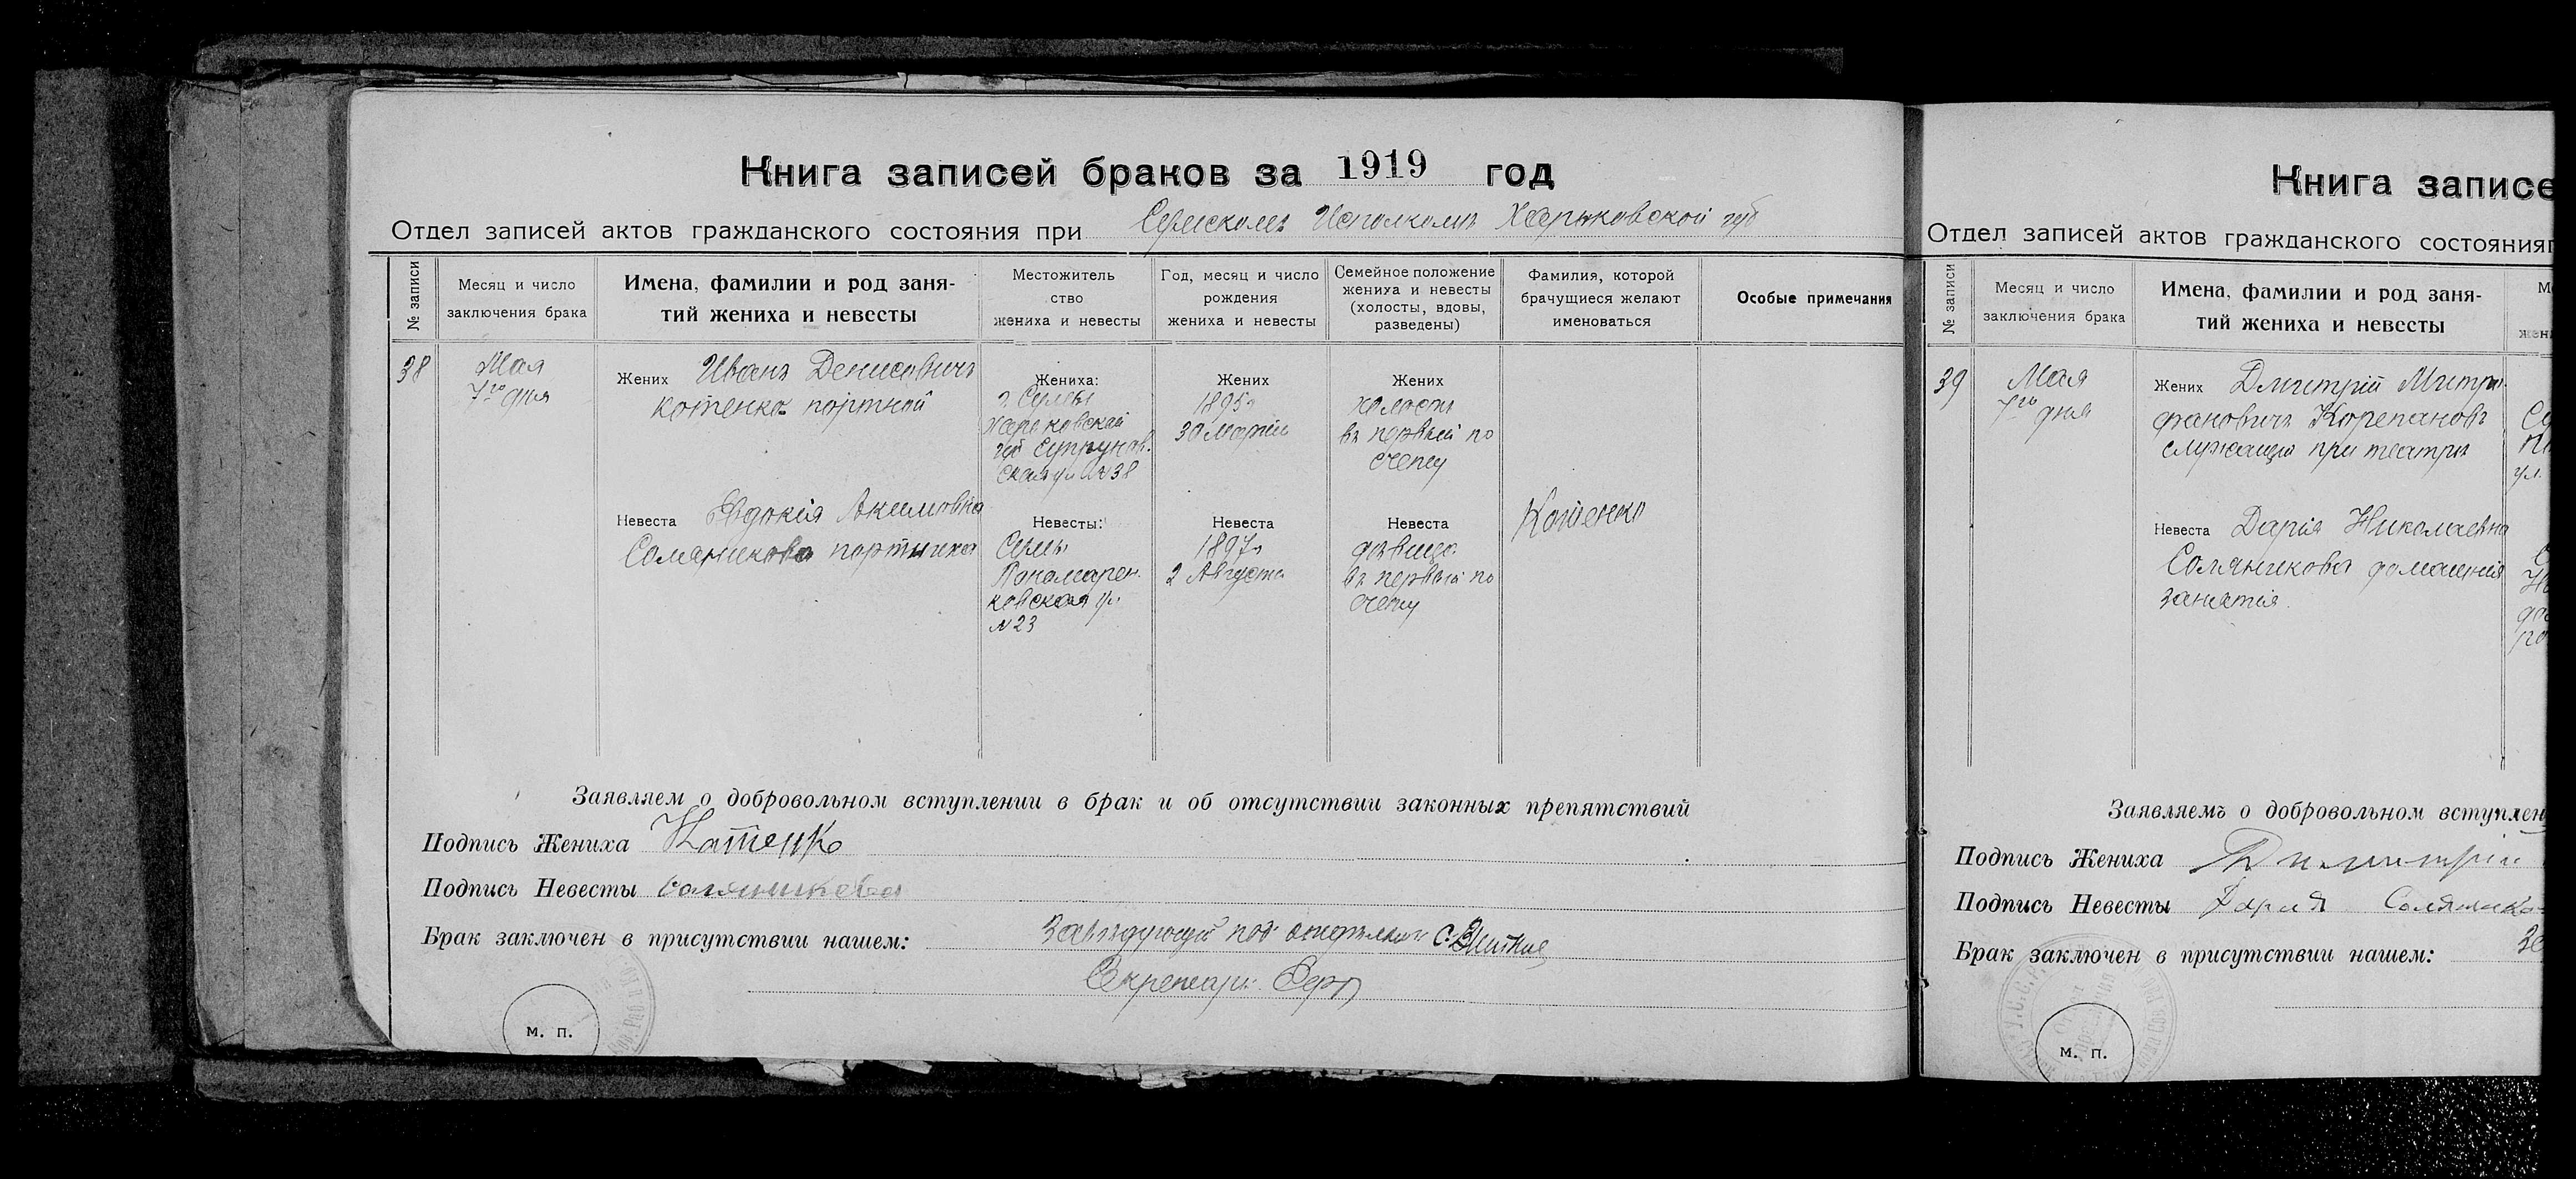 Книга записей браков за 1919 год
Отдел записей актов гражданского состояния при Сумскомъ Исполкомъ Харьковской губ
№ записи
Месяц и число
заключения брака
Имена, фамилии и род заня-
тий жениха и невесты
Местожитель
ство
жениха и невесты
Год, месяц и число
рождения
жениха и невесты
Семейное положение
жениха и невесты
(холосты, вдовы,
разведены)
Фамилия, которой
брачущиеся желают
именоваться
Особые примечания
38
Мая
7го дня
Жених Иванъ Денисовичъ
Котенко портной
Жениха:
г Сумы
Харьковской
губ Супрунов.
ская ул № 38
Жених
1895г
30 Марта
Жених
холостъ
въ первый по
счету
Невеста Евдокія Акимовна
Соляникова портниха
Невесты:
Сумы
Пономарен.
ковская ул
№ 23
Невеста
1897г
2 Августа
Невеста
дѣвица
въ первый по
счету
Котенко
Заявляем о добровольном вступлении в брак и об отсутствии законных препятствий
Подпись Жениха Котенко
Подпись Невесты Соляникова
Брак заключен в присутствии нашем: Завѣдующій под отдѣломъ
Секретарь
м. п.
Книга записе
Отдел записей актов гражданского состояния
№ записи
Месяц и число
заключения брака
Имена, фамилии и род заня-
тий жениха и невесты
39
Мая
7го дня
Жених Дмитрій Митро-
фановичъ Корепановъ
служащій при театрѣ
Невеста Дарія Николаевна
Соляникова домашнія
занятія.
Заявляемъ о добровольном вступлен
Подпись Жениха Димитрій
Подпись Невесты Дария Соляникова
Брак заключен в присутствии нашем:
м. п.